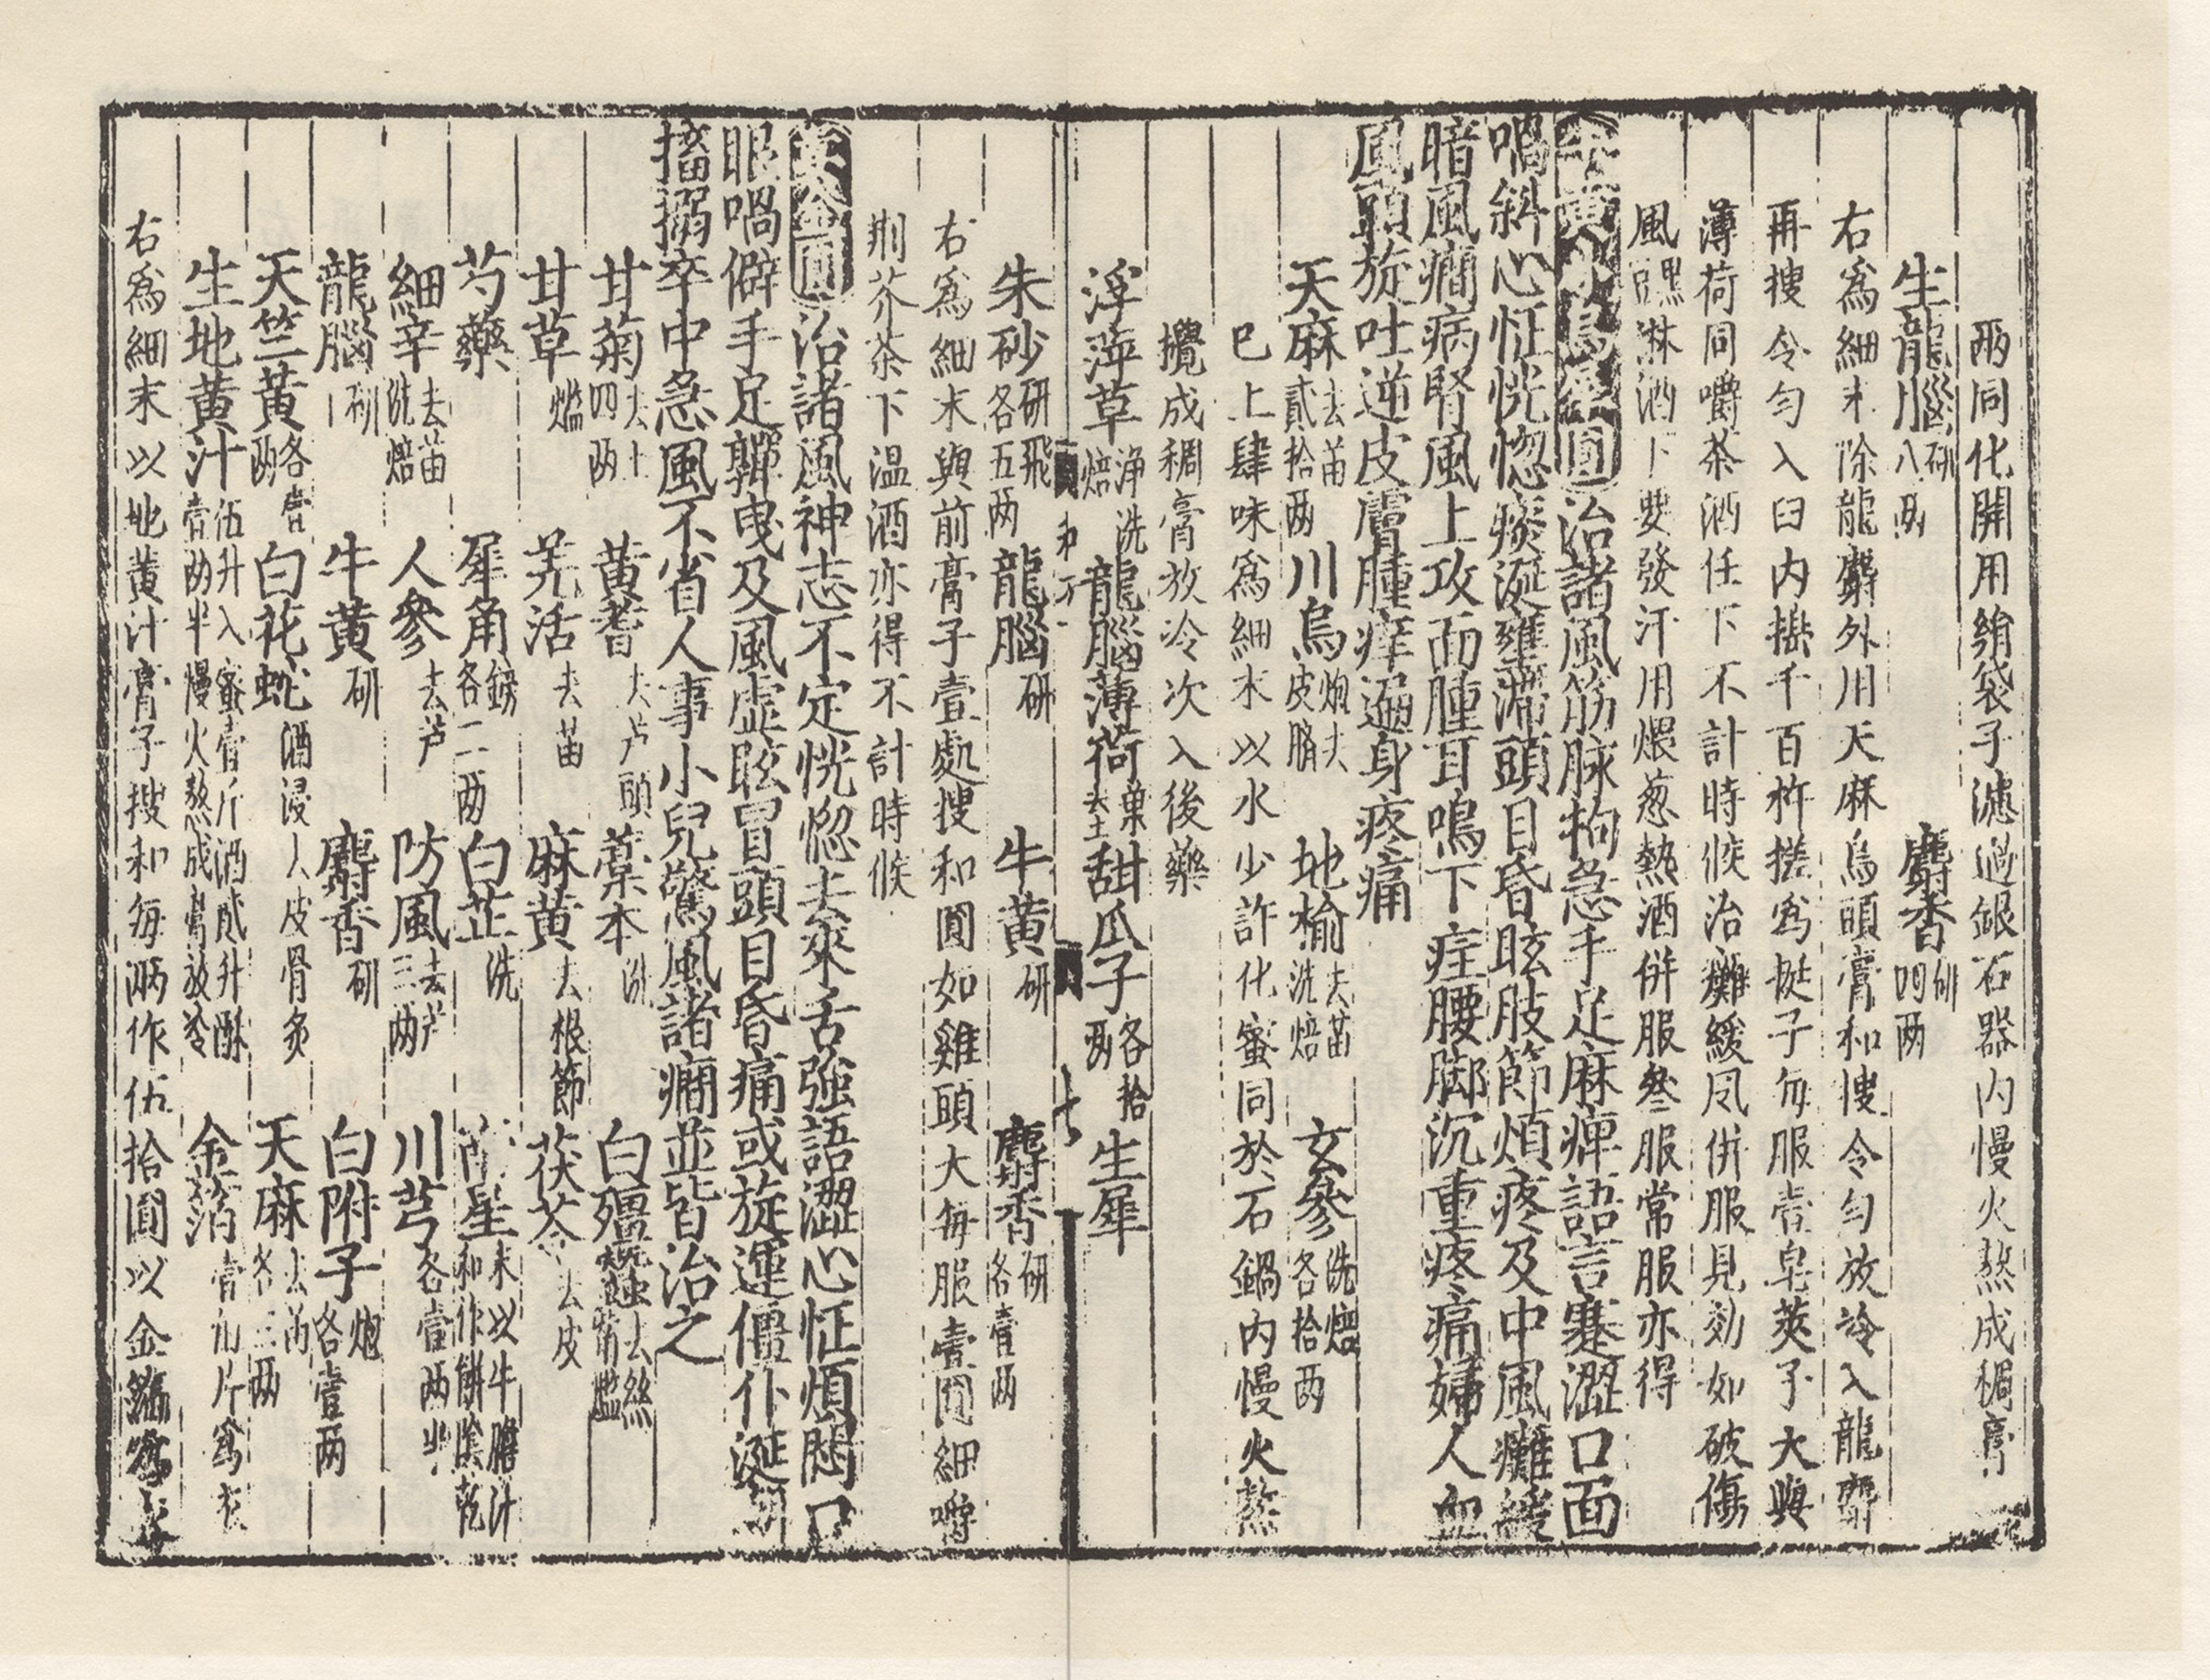 兩同化開用絹袋子濾過銀石器內慢火熬成稠膏
生龍腦研八兩 麝香研四兩
右為細末除龍麝外用天麻烏頭膏和搜令勻放冷入龍麝
再搜令勻入臼內擣千百杵搓為挺子每服壹皂莢子大與
薄荷同嚼茶酒任下不計時候治癱緩風併服見効如破傷
風黑淋酒下要發汗用煨葱熱酒併服叁服常服亦得
牛黃小烏犀圓治諸風筋脉拘急手足麻痺語言蹇澀口面
喎斜心怔恍惚痰涎壅滯頭目昏眩肢節煩疼及中風癱緩
暗風癇病腎風上攻面腫耳鳴下疰腰脚沉重疼痛婦人血
風頭旋吐逆皮膚腫痒遍身疼痛
天麻去苗貳拾兩 川烏炮去皮臍 地榆去苗洗焙 玄參洗焙各拾兩
巳上肆味為細末以水少許化蜜同於石鍋內慢火熬
攪成稠膏放冷次入後藥
浮萍草淨洗焙 龍腦薄荷葉去土 甜瓜子各拾兩 生犀
朱砂研飛各五兩 龍腦研 牛黃研 麝香研各壹兩
右為細末與前膏子壹處搜和圓如雞頭大每服壹圓細嚼
荆芥茶下溫酒亦得不計時候
英金圓治諸風神志不定恍惚去來舌強語澀心怔煩悶口
眼喎僻手足嚲曳及風虛眩冒頭目昏痛或旋運僵仆涎潮
搐搦卒中急風不省人事小兒驚風諸癇並皆治之
甘菊去土四兩 黃耆去芦頭 藁本洗 白殭蠶去絲觜爁
甘草爁 羌活去苗 麻黃去根節 茯苓去皮
芍藥 犀角鎊各二兩 白芷洗 南星末以牛膽汁和作餅陰乾
細辛去苗洗焙 人參去芦 防風去芦三兩 川芎各壹兩半
龍腦研 牛黃研 麝香研 白附子炮各壹兩
天竺黃各壹兩 白花蛇酒浸去皮骨炙 天麻去苗各三兩
生地黃汁伍升入蜜壹斤酒貳升酥壹兩半慢火熬成膏放冷 金箔壹百片為衣
右為細末以地黃汁膏子搜和每兩作伍拾圓以金箔為衣